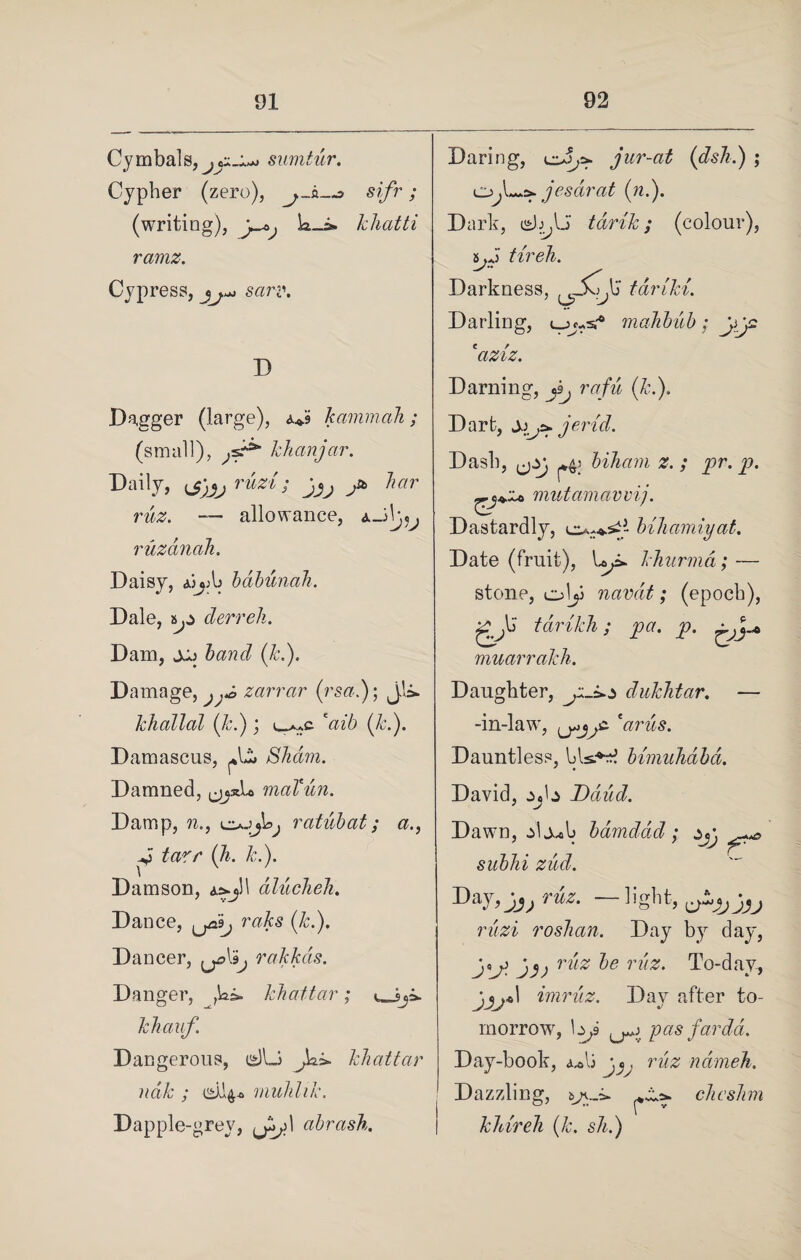 91
Cymbals, سنتور sumtúr.
Cypher (zero), صفر sifr ;
(writing), خط رمز khatti
ramz.
Cypress, سرو sarv.
D
Dagger (large), قمه kammah ;
(small), خنجر khanjar.
Daily, روزی rúzí ; هر روز har
rúz. — allowance, روزانه
rúzánah.
Daisy, بابونه bábúnah.
Dale, دره derreh.
Dam, بند band (k.).
Damage, ضرر zarrar (rsa.); خلل
khallal (k.) ; عیب ʿaib (k.).
Damascus, شام Shám.
Damned, ملعون malʿún.
Damp, n., رطوبت ratúbat ; a.,
تر tarr (h. k.).
Damson, آلوچه álúcheh.
Dance, رقص raks (k.).
Dancer, رقاص rakkás.
Danger, خطر khattar ; خوف
khauf.
Dangerous, خطر ناك khattar
nák ; مهلك muhlik.
Dapple-grey, ابرش abrash.
92
Daring, جرٔت jur-at (dsh.) ;
جسارت jesárat (n.).
Dark, تاریك tárík ; (colour),
تیره tíreh.
Darkness, تاریکی táríkí.
Darling, محبوب mahbúb ; عزیز
ʿazíz.
Darning, رفو rafú (k.).
Dart, جرید jeríd.
Dash, بهم زدن biham z. ; pr. p.
متموج mutamavvij.
Dastardly, بیحمیت bíhamiyat.
Date (fruit), خرما khurmá ; —
stone, نوات navát ; (epoch),
تاریخ táríkh ; pa. p. مورخ
muarrakh.
Daughter, دختر dukhtar. —
-in-law, عروس ʿarús.
Dauntless, بیمحابا bímuhábá.
David, داود Dáúd.
Dawn, بامداد bámdád ; صبح زود
subhi zúd.
Day, روز rúz. — light, روز روشن
rúzi roshan. Day by day,
روز بروز rúz be rúz. To-day,
امروز imrúz. Day after to-
morrow, پس فردا pas fardá.
Day-book, روز نامه rúz námeh.
Dazzling, چشم خیره cheshm
khíreh (k. sh.)